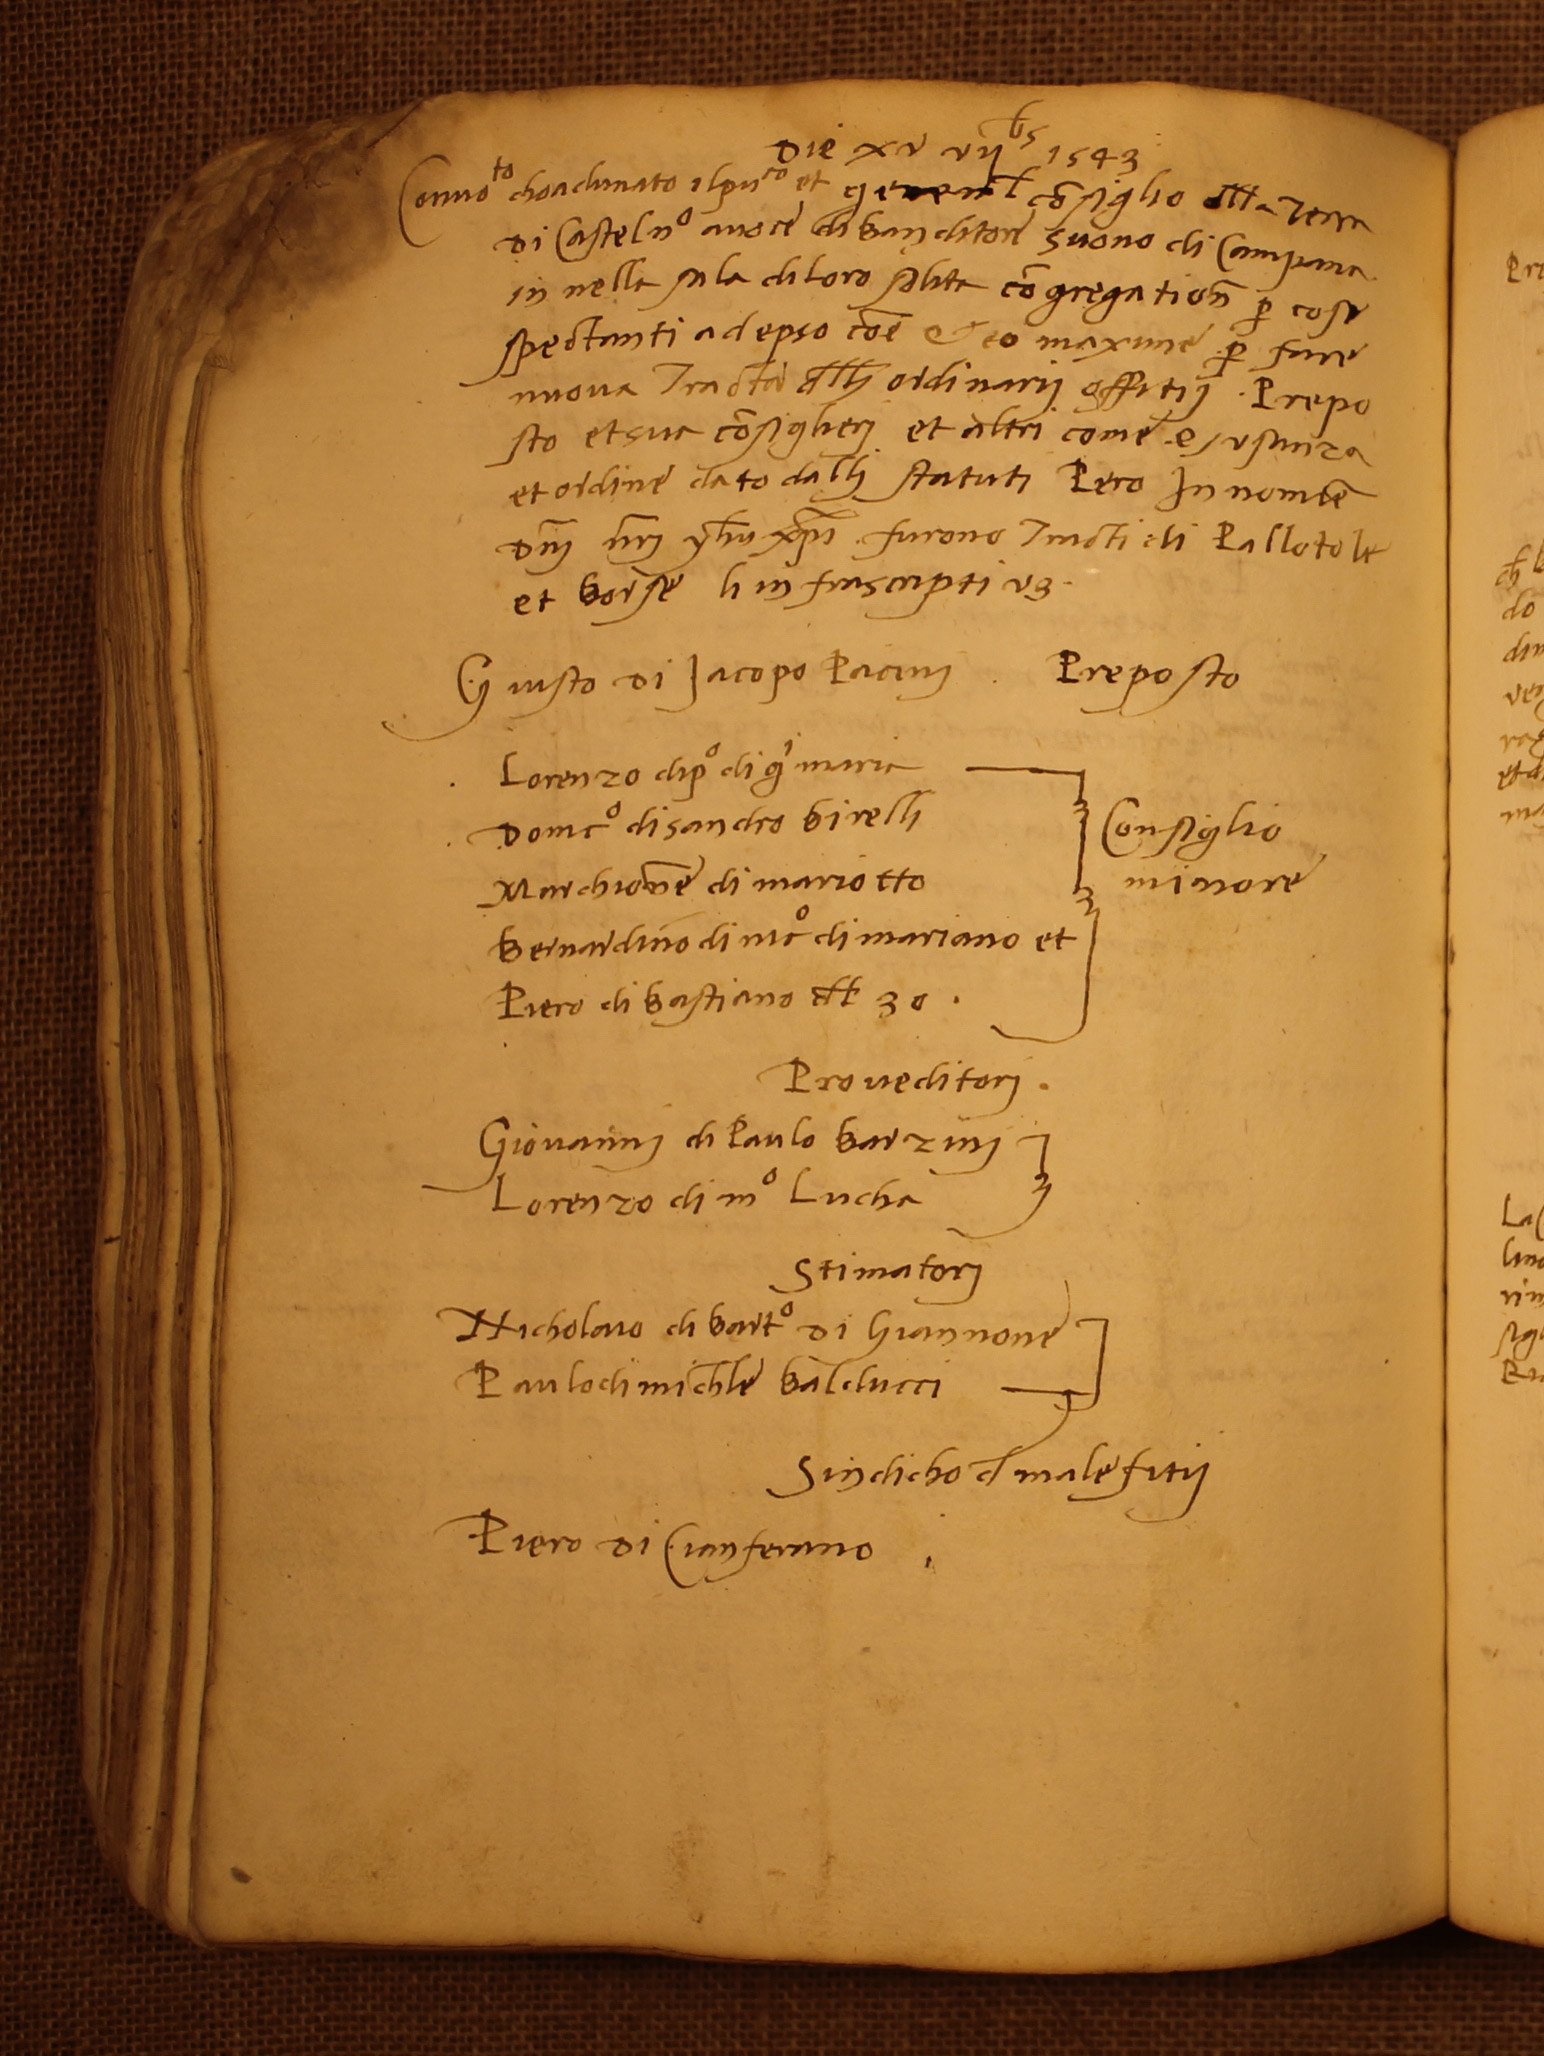 Die xv vij^bs 1543
Conuo^to choadunato il pu^co et general co̅siglio dll̅a Terra
di Casteln^o a uoce di banditore suono di Campana
in nella sala di loro solita co̅gregation̅ p̅ cose
spectanti ad epso co̅e & eo maxime p̅ fare
nuoua Tracta dll̅i ordinarij offitij . Prepo
sto et sua co̅siglierj et altri come e usanza
et ordine dato dalli statuti Pero In nomi̅e
Dn̅j nr̅j yh̅u xp̅i . furono Tracti di Pallotole
et borse li infrascripti vz .
Giusto di Jacopo Pacinj . Preposto
. Lorenzo di p^o di g^i maria
. Dom^co di sandro birelli
Consiglio
Marchion̅e di mariotto
minore
bernardino di nic^o di mariano et
Piero di bastiano dll̅ 30 .
Proueditorj .
Giouannj di Paulo barzinj
Lorenzo di m^o Lucha
Stimatorj
Nicholaio di bart^o di Giannone
Paulo di mich̅le balducci
Sindicho d̅ malefitij
Piero di Cianferano .
Pre
do
La